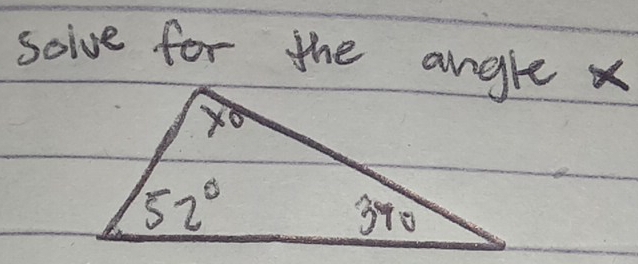 solve for the angle x
x°
52°